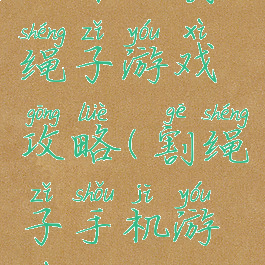 shéng zǐ yóu xì
绳子游戏
gōng lüè gē shéng
攻略(割绳
zǐ shǒu jī yóu
子手机游